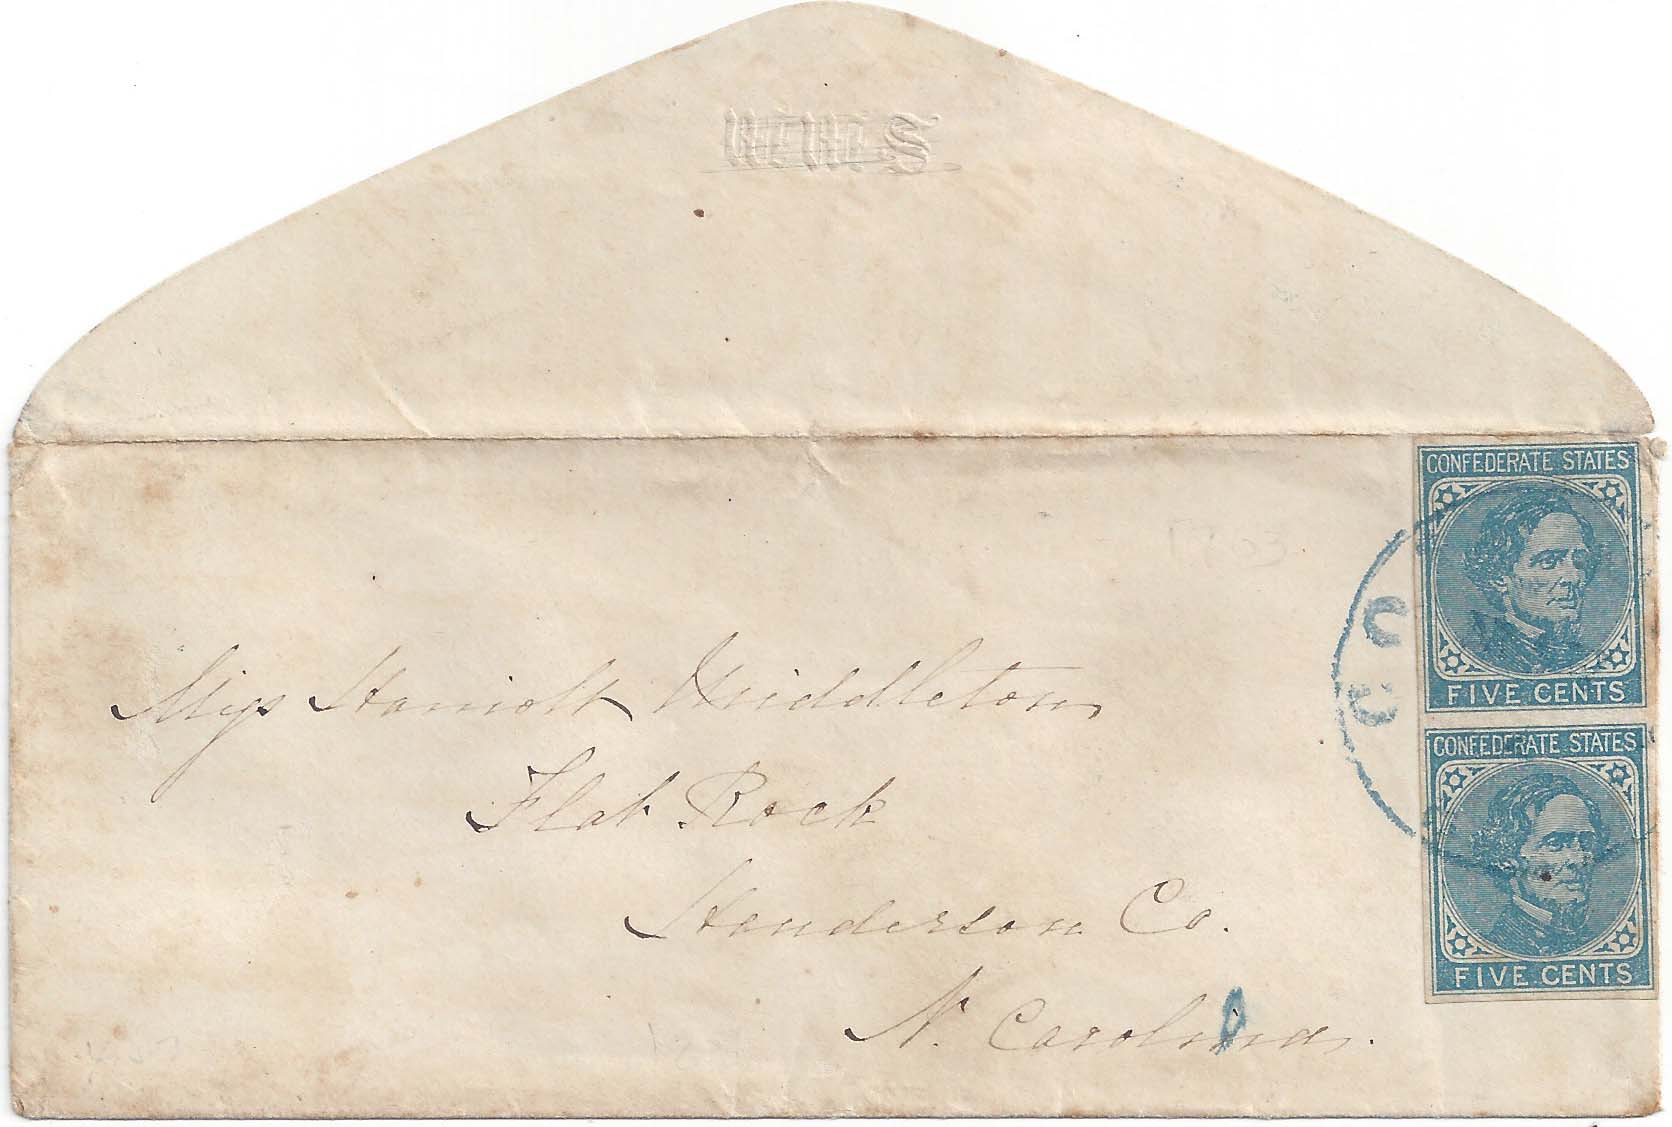 CONFEDERATE STATES
FIVE CENTS
CONFEDERATE STATES
FIVE CENTS
Miss Harriott Middleton
Flat Rock
Henderson Co.
N. Carolina.